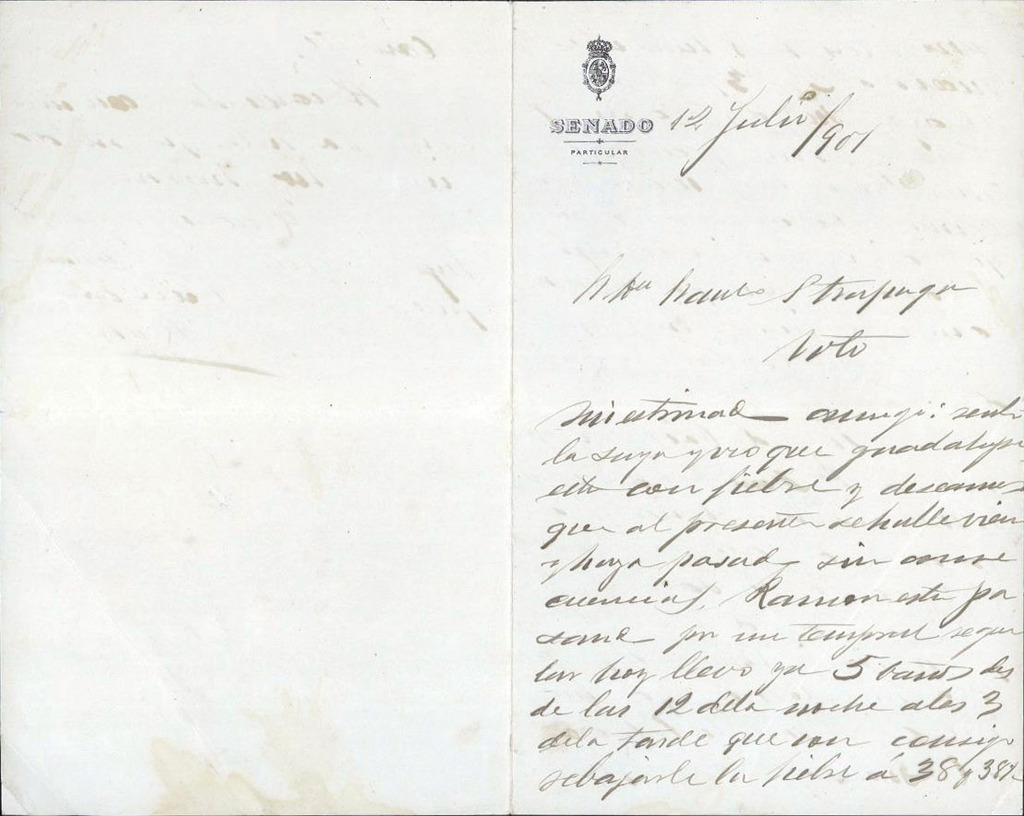 SENADO
PARTICULAR
12 Julio/901
Voto
Mi estimado amigo:
la suya y veo que guadalupe
esta con fiebre y deseamos
que al presente se halle bien
y haya pasado sin conse
cuencias, Ramon esta pa
sando por un temporal regu
lar hoy llevo ya 5 baños des
de las 12 de la noche a las 3
de la tarde que con consigo
rebajarle la fiebre á 38 y 38½